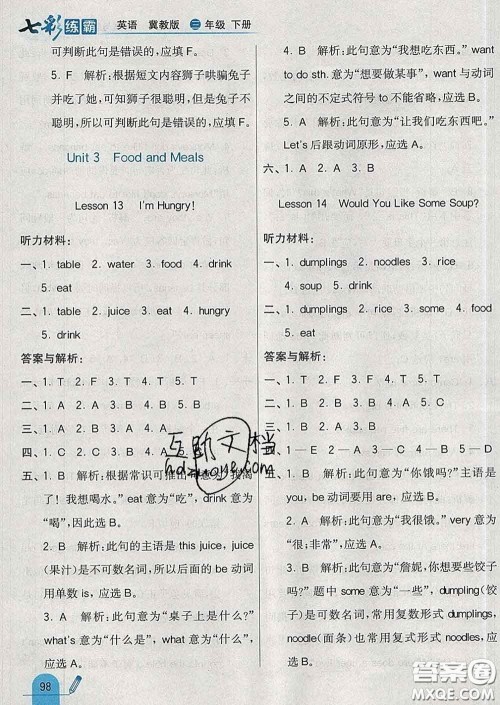 七彩练霸 英语 冀教版 三年级 下册
可判断此句是错误的,应填 F。
5. F 解析:根据短文内容狮子哄骗兔子
并吃了她,可知狮子很聪明,但是兔子不
聪明,所以可判断此句是错误的,应填 F。
Unit 3 Food and Meals
Lesson 13 I'm Hungry!
听力材料:
一、1. table 2. water 3. food 4. drink
5. eat
二、1. table 2. juice 3. eat 4. hungry
5. drink
答案与解析:
一、1. T 2. F 3. T 4. T 5. T
二、1. A 2. A 3. B 4. B 5. A
三、1. B 2. B 3. A 4. B 5. A
四、1. B 2. A 3. A 4. A
五、1. B 解析:根据常识可推出句意为“我渴
了! 我想喝水。”eat 意为“吃”,drink 意为
“喝”,因此选 B。
2. B 解析:此句的主语是 this juice,juice
(果汁)是不可数名词,所以后面的 be 动词
用单数 is,应选 B。
3. A 解析:此句意为“桌子上是什么?”
what's 意为“什么是”,what 意为“什么”,
应选 A。
98
4. B 解析:此句意为“我想吃东西。”want
to do sth. 意为“想要做某事”,want 与动词
之间的不定式符号 to 不能省略,应选 B。
5. A 解析:此句意为“让我们吃东西吧。”
Let's 后跟动词原形,应选 A。
六、1. A 2. A 3. B
Lesson 14 Would You Like Some Soup?
听力材料:
一、1. dumplings 2. noodles 3. rice
4. soup 5. drink
二、1. dumplings 2. rice 3. some 4. food
5. drink
答案与解析:
一、1. T 2. F 3. F 4. T 5. T
二、1. B 2. A 3. B 4. A 5. B
三、1. A 2. B 3. A 4. A 5. A
1—E 2—A 3—D 4—C 5—B
1. B 解析:此句意为“你饿吗?”主语是
you,be 动词要用 are,应选 B。
2. A 解析:此句意为“我很饿。”very 意为
“很;非常”,应选 A。
3. B 解析:此句意为“詹妮,你想要些饺子
吗?”题中 some 意为“一些”,dumpling(饺
子)是可数名词,常用复数形式 dumplings,
noodle(面条)也常用复式形式 noodles,应
选 B。
互助文档
hdzuoye.com
答案圈
MXQE.COM